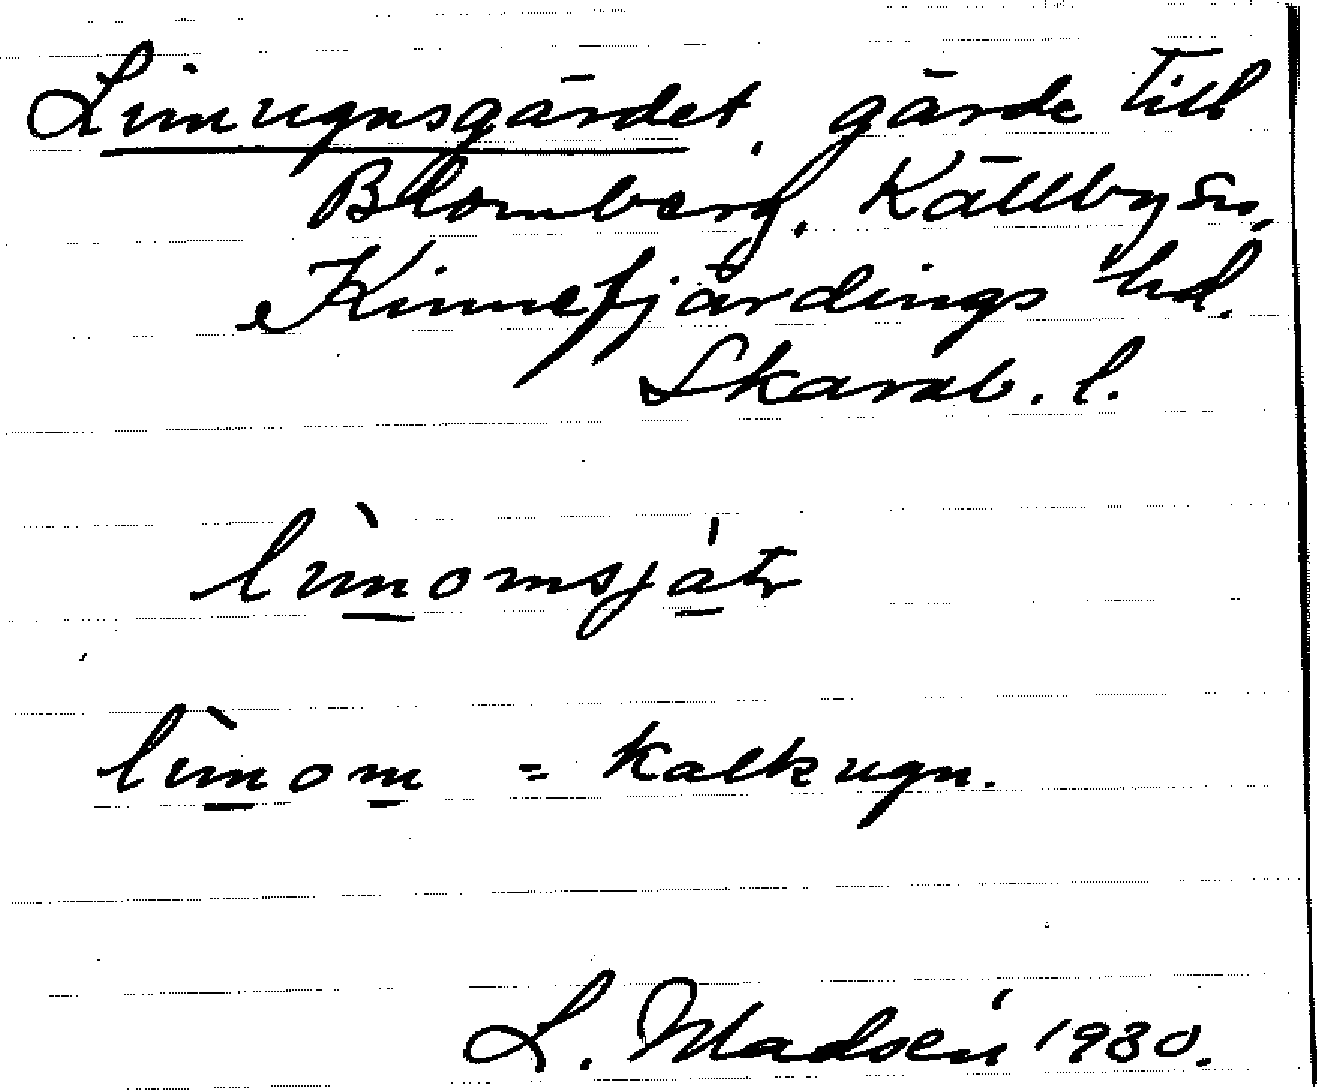 Limugnsgärdet, gärde till
Blomberg, Källby sn,
Kinnefjärdings hd.
Skarab. l.
lìmomsjátr
lìmom = kalkugn.
L. Madsén 1930.